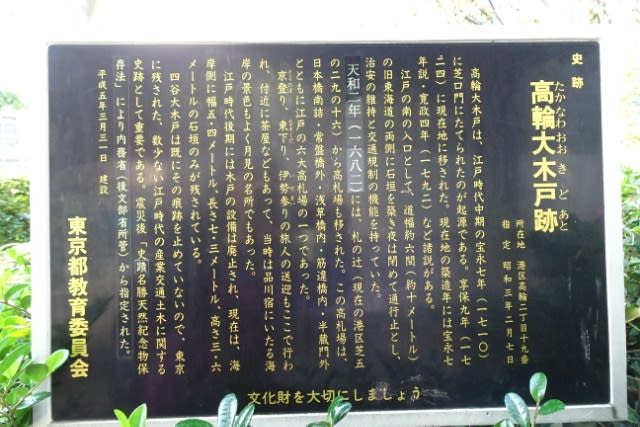 史跡
高輪大木戸跡
たかなわおおきどあと
所在地 港区高輪二丁目十九番
指定 昭和三年二月七日
高輪大木戸は、江戸時代中期の宝永七年(一七一〇)
に芝口門にたてられたのが起源である。享保九年(一七
二四)に現在地に移された。現在地の築造年には宝永七
年説・寛政四年(一七九二)など諸説がある。
江戸の南の入口として、道幅約六間(約十メートル)
の旧東海道の両側に石垣を築き夜は閉めて通行止とし、
治安の維持と交通規制の機能を持っていた。
天和二年(一六八二)には、札の辻(現在の港区芝五
の二九の十六)から高札場も移された。この高札場は、
日本橋南詰・常盤橋外・浅草橋内・筋違橋内・半蔵門外
とともに江戸の六大高札場の一つであった。
京登り、東下り、伊勢参りの旅人の送迎もここで行わ
れ、付近に茶屋などもあって、当時は品川宿にいたる海
岸の景色もよく月見の名所でもあった。
江戸時代後期には木戸の設備は廃止され、現在は、海
岸側に幅五・四メートル、長さ七・三メートル、高さ三・六
メートルの石垣のみが残されている。
四谷大木戸は既にその痕跡を止めていないので、東京
に残された、数少ない江戸時代の産業交通土木に関する
史跡として重要である。震災後「史蹟名勝天然紀念物保
存法」により内務省(後文部省所管)から指定された。
平成五年三月三一日 建設
東京都教育委員会
文化財を大切にしましょう